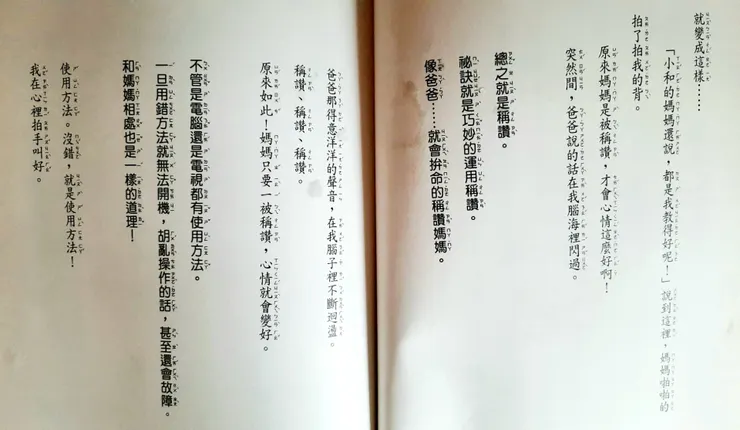 就變成這樣……
「小和的媽媽還說，都是我教得好呢！」說到這裡，媽媽啪啪的
拍了拍我的背。
原來媽媽是被稱讚，才會心情這麼好啊！
突然間，爸爸說的話在我腦海裡閃過。
總之就是稱讚。
祕訣就是巧妙的運用稱讚。
像爸爸……就會拚命的稱讚媽媽。
爸爸那得意洋洋的聲音，在我腦子裡不斷迴盪。
稱讚、稱讚、稱讚。
原來如此！媽媽只要一被稱讚，心情就會變好。
不管是電腦還是電視都有使用方法。
一旦用錯方法就無法開機，胡亂操作的話，甚至還會故障。
和媽媽相處也是一樣的道理！
使用方法。沒錯，就是使用方法！
我在心裡拍手叫好。